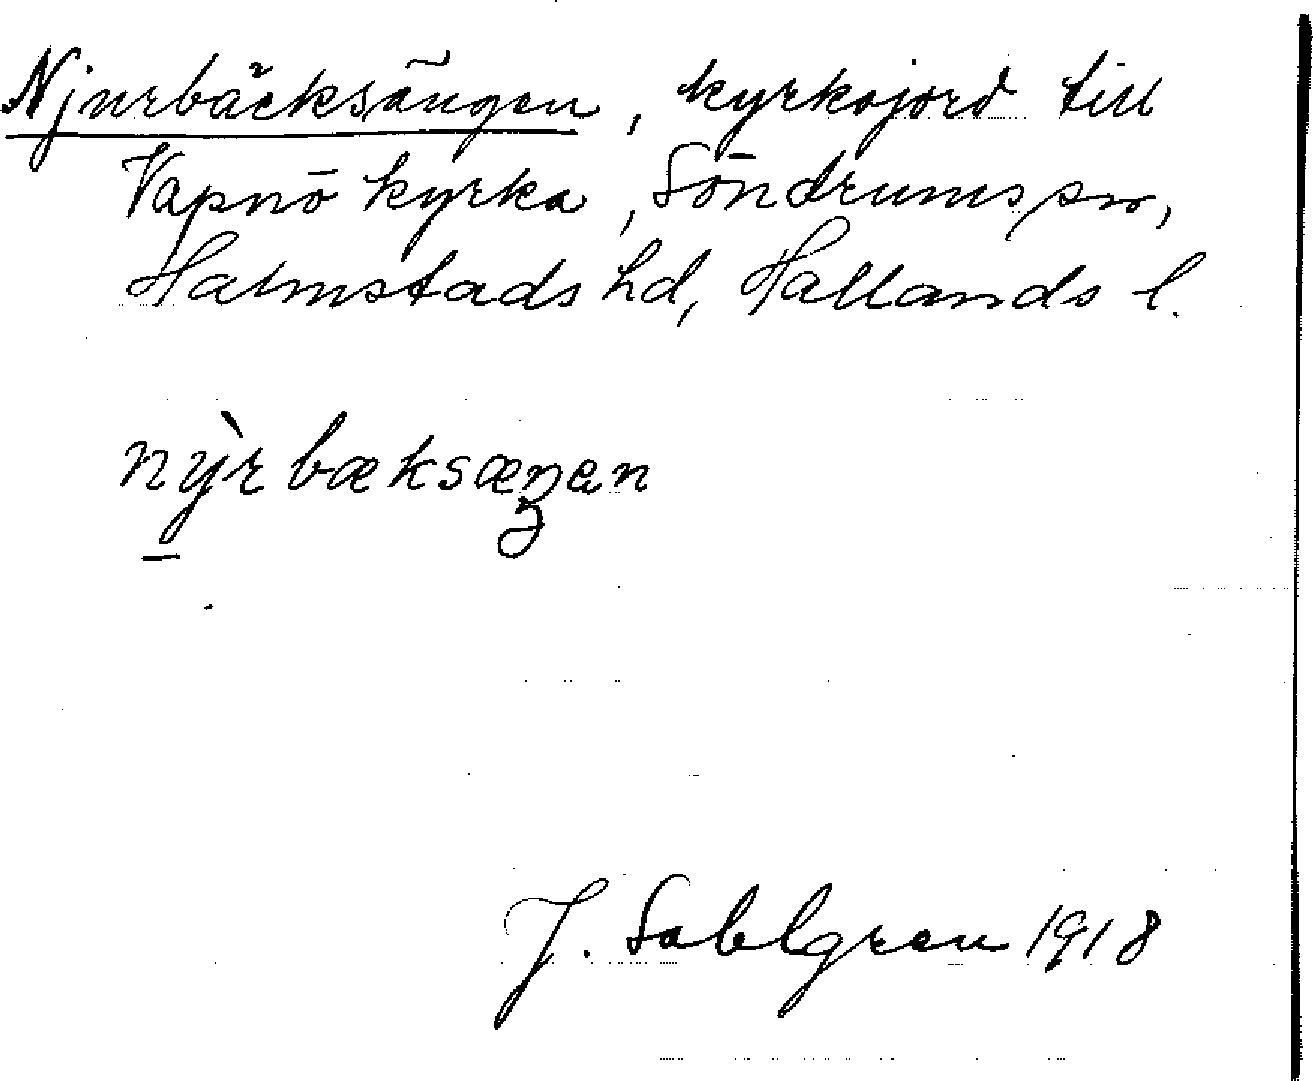 Njurbäcksängen, kyrkojord till
Vapnö kyrka, Söndrums sn,
Halmstads hd, Hallands l.
nỳrbæksæŋən
J. Sahlgren 1918